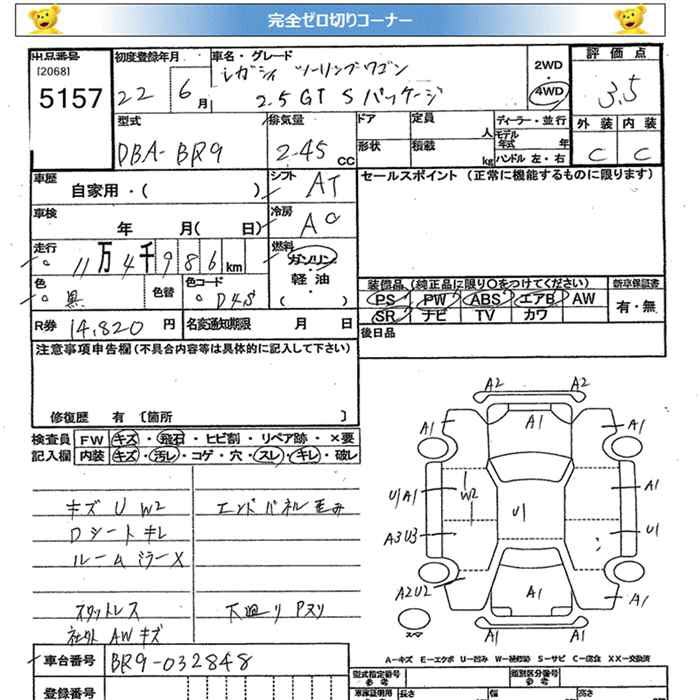 完全ゼロ切りコーナー
出品番号
[2068]
5157
初度登録年月
22 6月
車名・グレード
レガシィ ツーリングワゴン
2.5GT Sパッケージ
2WD
4WD
評価点
3.5
外装 内装
C C
型式
DBA-BR9
排気量
2.45 CC
ドア
定員 人
形状
積載 kg
ディーラー・並行
モデル年式 年
ハンドル 左・右
車歴
自家用・( )
シフト
AT
車検
年 月( 日)
冷房
AC
走行
11万4千986km
燃料
ガソリン・軽油・( )
色
黒
色替
色コード
D4S
R券 14,820円
名変通知期限 月 日
セールスポイント (正常に機能するものに限ります)
装備品(純正品に限り○をつけてください)
新車保証書
PS PW ABS エアB AW
SR ナビ TV カワ
有・無
後日品
注意事項申告欄(不具合内容等は具体的に記入して下さい)
修復歴 有 〔箇所 〕
検査員記入欄
FW キズ・飛石・ヒビ割・リペア跡・×要
内装 キズ・汚レ・コゲ・穴・スレ・キレ・破レ
キズ U W2
Dシートキレ
ルームミラーX
スタットレス
社外 AW キズ
エンドパネル歪み
下廻りPヌリ
A2 A2
A1 A1 A1
U/A1 W2 A1
U1
A3U3 U1
A2U2 A1 A1
A1 A1
スペア
A-キズ E-エクボ U-凹み W-補修跡 S-サビ C-腐食 XX-交換済
車台番号
BR9-032848
登録番号
型式指定番号
参考
類別区分番号
参考
車庫証明用
長さ 幅 高さ